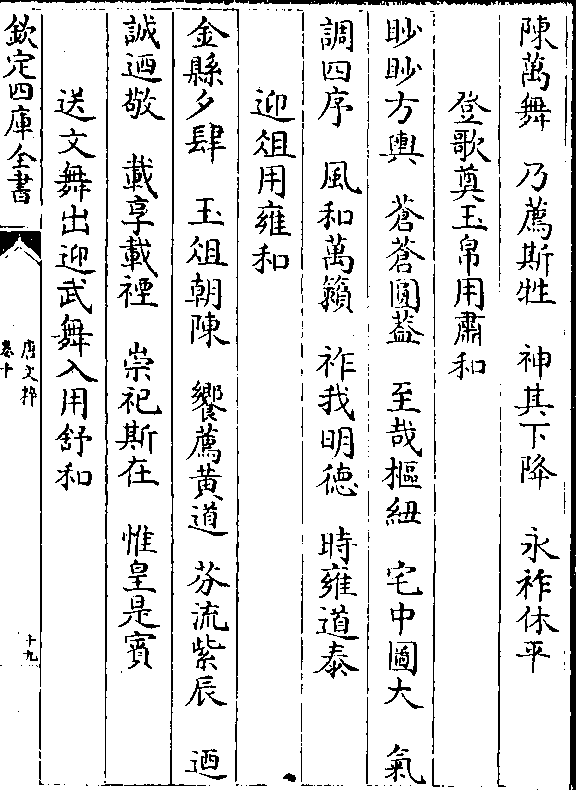 陳萬舞　乃薦斯牲　神其下降　永祚休平
登歌奠玉帛用肅和
眇眇方輿　蒼蒼圓葢　至哉樞紐　宅中圖大　氣
調四序　風和萬籟　祚我明徳　時雍道泰
迎俎用雍和
金縣夕肆　玉俎朝陳　饗薦黄道　芬流紫辰　迺
誠迺敬　載享載禋　崇祀斯在　惟皇是賓
送文舞出迎武舞入用舒和
欽定四庫全書
唐文粹
卷十
十九